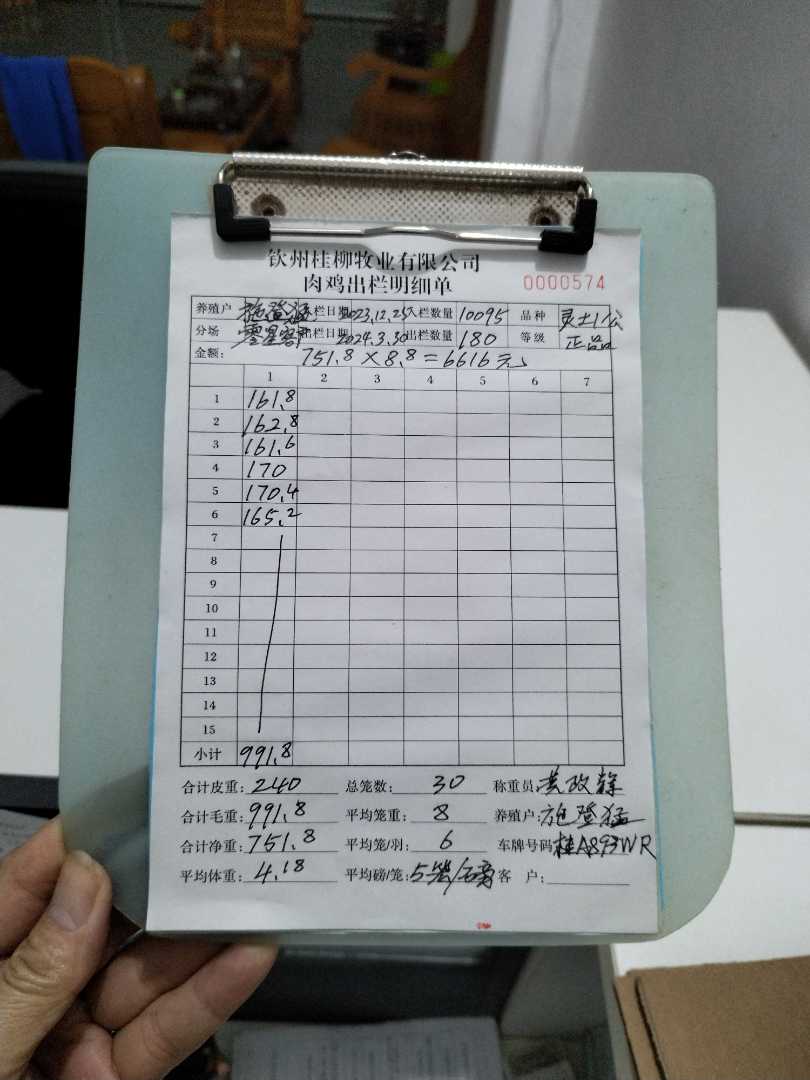 钦州桂柳牧业有限公司
肉鸡出栏明细单 0000574
养殖户 施登猛 入栏日期 2023.12.25 入栏数量 10095 品种 灵土1公
分场 零星客户 出栏日期 2024.3.30 出栏数量 180 等级 正品
金额: 751.8 × 8.8 = 6616元
1 2 3 4 5 6 7
1 161.8
2 162.8
3 161.6
4 170
5 170.4
6 165.2
7
8
9
10
11
12
13
14
15
小计 991.8
合计皮重: 240 总笼数: 30 称重员:
合计毛重: 991.8 平均笼重: 8 养殖户: 施登猛
合计净重: 751.8 平均笼/羽: 6 车牌号码 桂A893WR
平均体重: 4.18 平均磅/笼: 5笼/磅 客户: